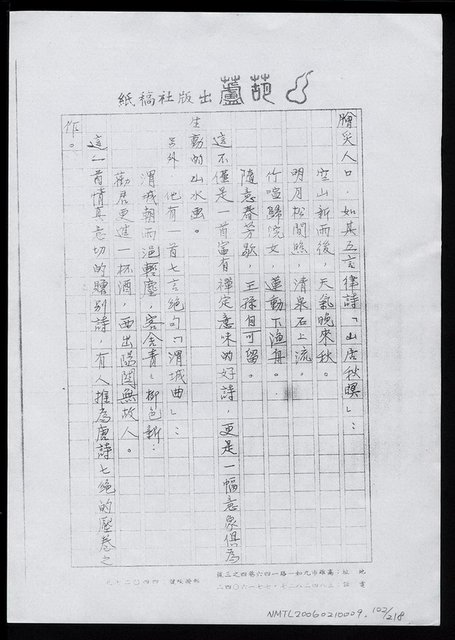 葫蘆出版社稿紙
膾炙人口，如其五言律詩「山居秋暝」：
空山新雨後，天氣晚來秋。
明月松間照，清泉石上流。
竹喧歸浣女，蓮動下漁舟。
隨意春芳歇，王孫自可留。
這不僅是一首富有禪定意味的好詩，更是一幅意象俱為
生動的山水畫。
另外，他有一首七言絕句「渭城曲」：
渭城朝雨浥輕塵，客舍青青柳色新；
勸君更進一杯酒，西出陽關無故人。
這一首情真意切的贈別詩，有人推為唐詩七絕的壓卷之
作。
地址：高雄市九如一路一四六巷四之三號
NMTL20060210009. 102/218